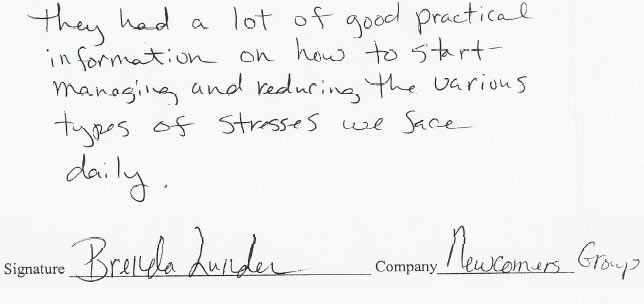 they had a lot of good practical
information on how to start
managing and reducing the various
types of stresses we face
daily.
Signature Brenda Company Newcomers Group